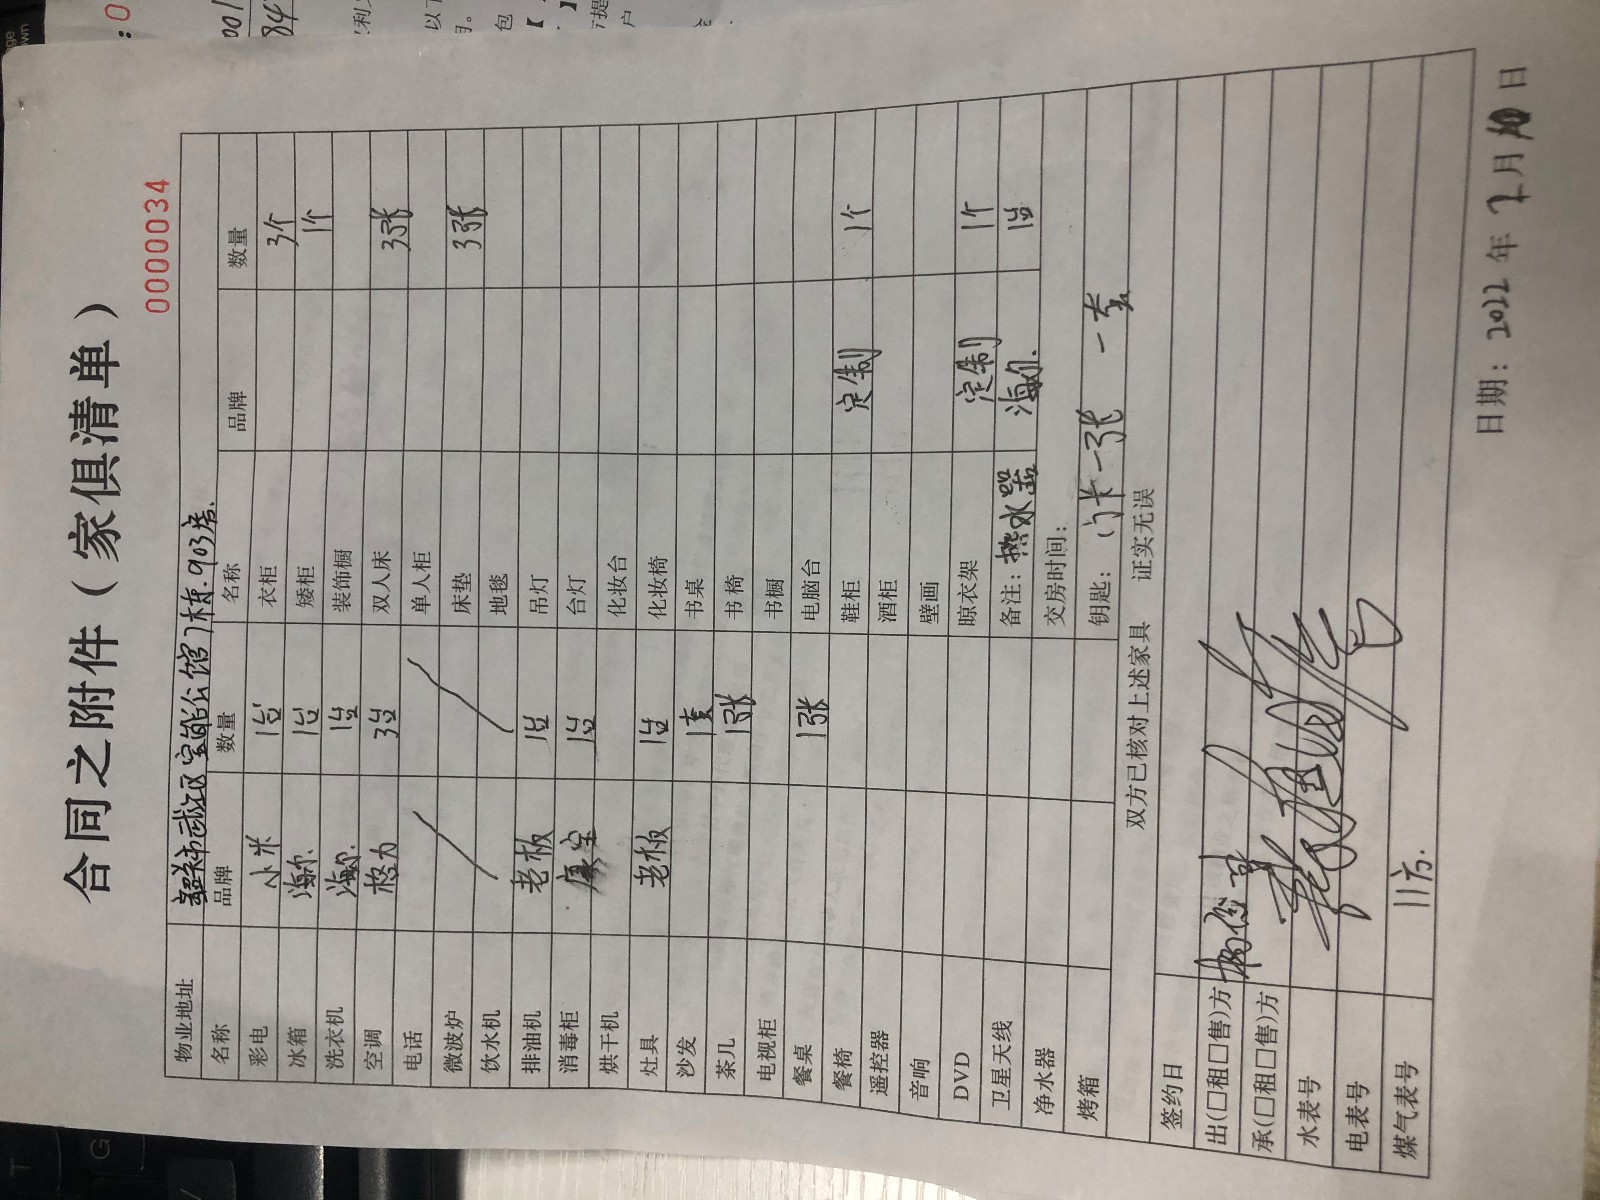 合同之附件（家俱清单）
0000034
物业地址 韶关市武江区宝能公馆7栋.903房.
名称 品牌 数量 名称 品牌 数量
彩电 小米 1台 衣柜 3个
冰箱 海尔. 1台 矮柜 1个
洗衣机 海尔. 1台 装饰橱
空调 格力 3台 双人床 3张
电话 单人柜
微波炉 床垫 3张
饮水机 地毯
排油机 老板 1台 吊灯
消毒柜 康宝 1台 台灯
烘干机 化妆台
灶具 老板 1台 化妆椅
沙发 1套 书桌
茶几 1张 书椅
电视柜 书橱
餐桌 1张 电脑台
餐椅 鞋柜 定制 1个
遥控器 酒柜
音响 壁画
DVD 晾衣架 定制 1个
卫星天线 备注：热水器 海尔. 1台
净水器 交房时间：
烤箱 钥匙：门卡一张 一套
双方已核对上述家具 证实无误
签约日
出(□租□售)方
承(□租□售)方
水表号
电表号
煤气表号 11方.
日期：2022年2月10日